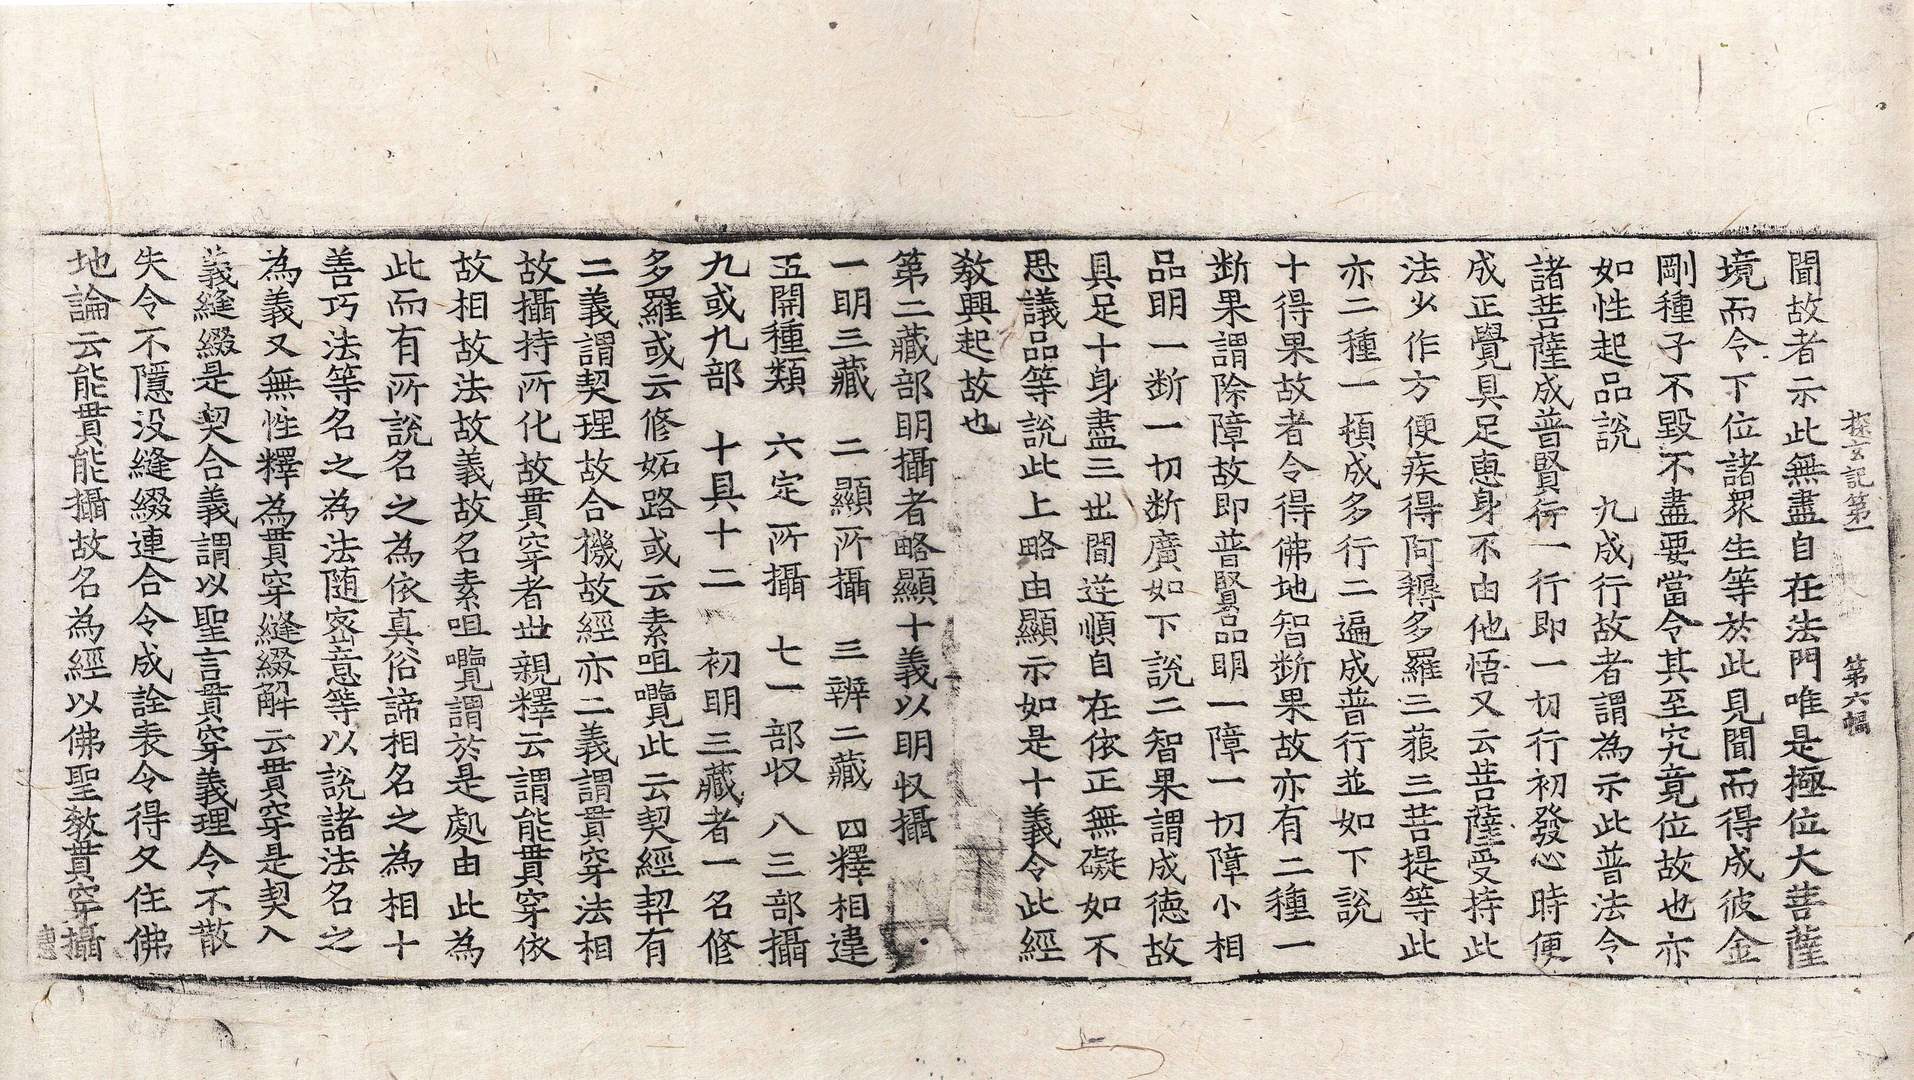 探玄記第一　第六幅
聞故者示此無盡自在法門唯是極位大菩薩
境而令下位諸衆生等於此見聞而得成彼金
剛種子不毀不盡要當令其至究竟位故也亦
如性起品說　九成行故者謂為示此普法令
諸菩薩成普賢行一行即一切行初發心時便
成正覺具足惠身不由他悟又云菩薩受持此
法少作方便疾得阿耨多羅三藐三菩提等此
亦二種一頓成多行二遍成普行並如下說
十得果故者令得佛地智斷果故亦有二種一
斷果謂除障故即普賢品明一障一切障小相
品明一斷一切斷廣如下說二智果謂成徳故
具足十身盡三世間逆順自在依正無礙如不
思議品等說此上略由顯示如是十義令此經
教興起故也
第二藏部明攝者略顯十義以明収攝
一明三藏　二顯所攝　三辨二藏　四釋相違
五開種類　六定所攝　七一部収　八三部攝
九或九部　十具十二　初明三藏者一名修
多羅或云修妬路或云素呾囕此云契經契有
二義謂契理故合機故經亦二義謂貫穿法相
故攝持所化故貫穿者世親釋云謂能貫穿依
故相故法故義故名素呾囕謂於是處由此為
此而有所說名之為依真俗諦相名之為相十
善巧法等名之為法随密意等以說諸法名之
為義又無性釋為貫穿縫綴解云貫穿是契入
義縫綴是契合義謂以聖言貫穿義理令不散
失令不隱没縫綴連合令成詮表令得久住佛
地論云能貫能攝故名為經以佛聖教貫穿攝